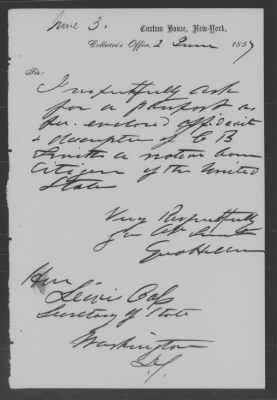 June 3.
Custom House, New-York,
Collector's Office, 2 June 1857
Sir:
I respectfully ask
for a passport as
per enclosed affidavit
& description of C B
Smith a native born
Citizen of the United
State
Very Respectfully
Hon
Lewis Cass
Secretary of State
Washington